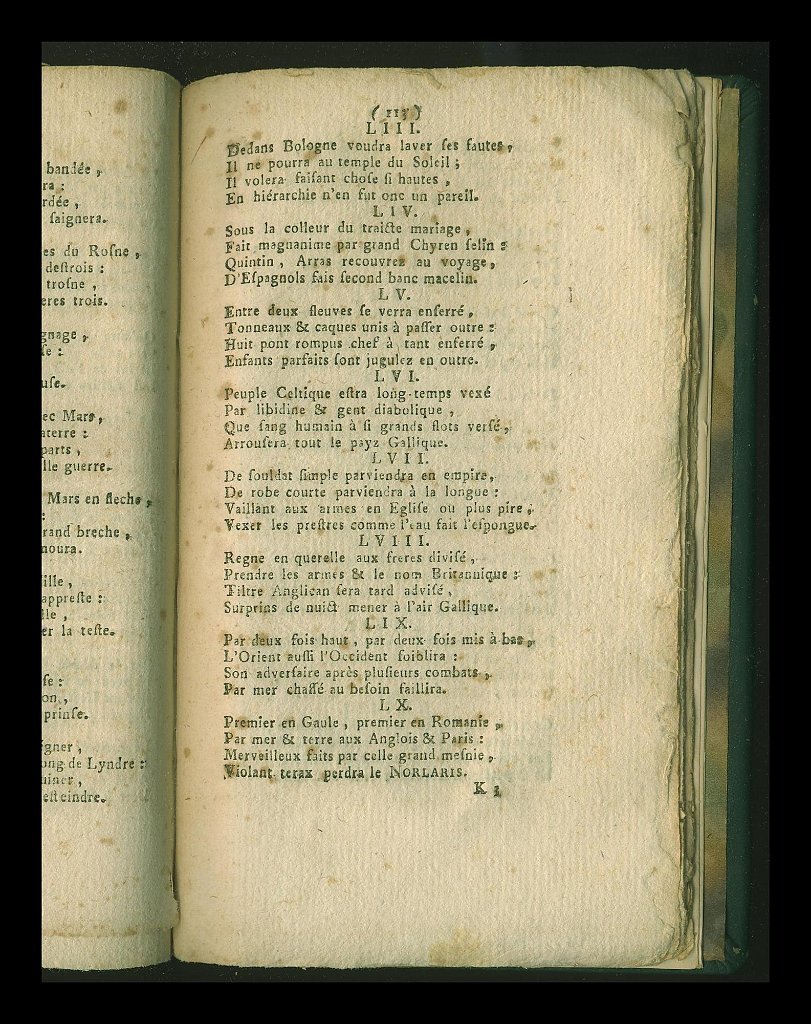 bandée,
ra :
rdée,
ſaignera.
es du Roſne,
deſtrois :
troſne,
eres trois.
gnage,
ſe :
uſe.
ec Mars,
aterre :
parts,
lle guerre.
Mars en fleche,
:
rand breche,
noura.
ille,
appreſte :
lle,
er la teſte.
ſe :
on,
prinſe.
igner,
ong de Lyndre :
iner,
eſteindre.
( 113 )
LIII.
Dedans Bologne voudra laver ſes fautes,
Il ne pourra au temple du Soleil ;
Il volera faiſant choſe ſi hautes,
En hiérarchie n'en fut onc un pareil.
LIV.
Sous la colleur du traicte mariage,
Fait magnanime par grand Chyren ſelin :
Quintin, Arras recouvrez au voyage,
D'Eſpagnols fais ſecond banc macelin.
LV.
Entre deux fleuves ſe verra enſerré,
Tonneaux & caques unis à paſſer outre :
Huit pont rompus chef à tant enferré,
Enfants parfaits ſont jugulez en outre.
LVI.
Peuple Celtique eſtra long-temps vexé
Par libidine & gent diabolique,
Que ſang humain à ſi grands flots verſé,
Arrouſera tout le payz Gallique.
LVII.
De ſouldat ſimple parviendra en empire,
De robe courte parviendra à la longue :
Vaillant aux armes en Egliſe ou plus pire,
Vexer les preſtres comme l'eau fait l'eſpongue.
LVIII.
Regne en querelle aux freres diviſé,
Prendre les armes & le nom Britannique :
Tiltre Anglican ſera tard adviſé,
Surprins de nuict mener à l'air Gallique.
LIX.
Par deux fois haut, par deux fois mis à bas,
L'Orient auſſi l'Occident foiblira :
Son adverſaire après pluſieurs combats,
Par mer chaſſé au beſoin faillira.
LX.
Premier en Gaule, premier en Romanie,
Par mer & terre aux Anglois & Paris :
Merveilleux faits par celle grand meſnie,
Violant terax perdra le NORLARIS.
K 3